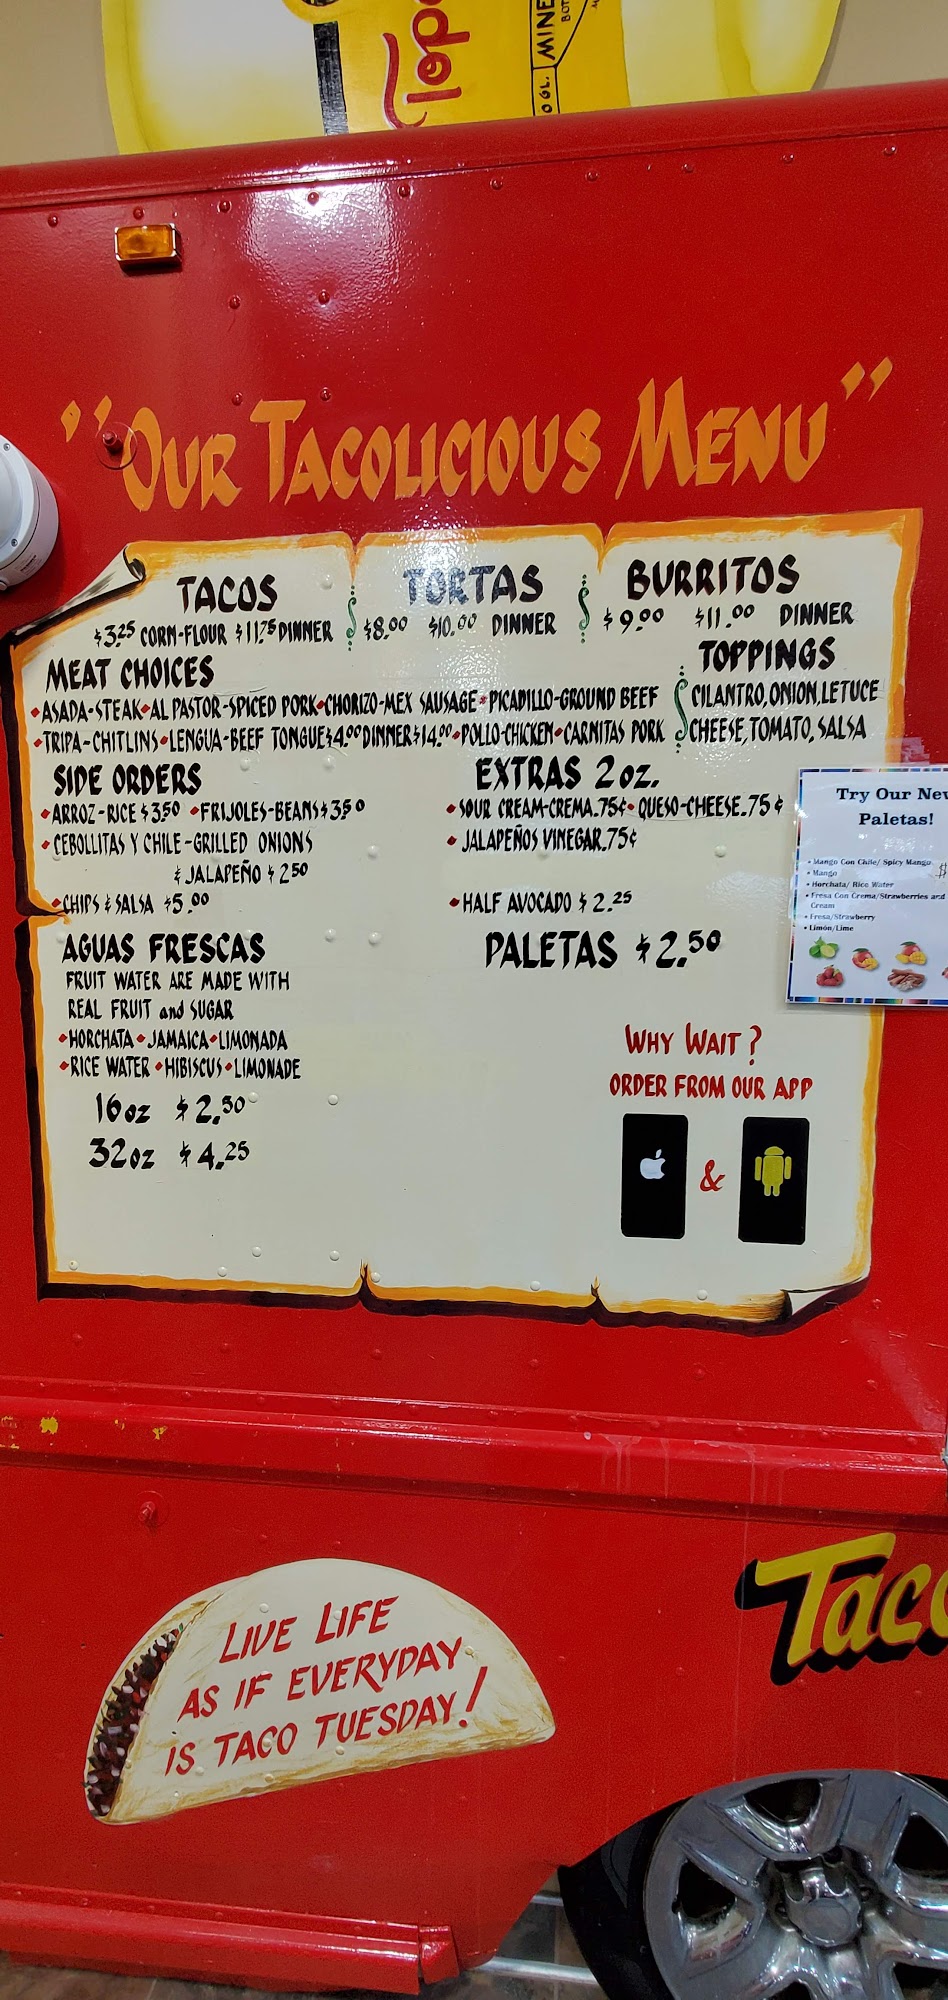 Topo
MINE
BOT
0 GL.
"Our Tacolicious Menu"
TACOS
$3.25 CORN-FLOUR $11.75 DINNER
TORTAS
$8.00 $10.00 DINNER
BURRITOS
$9.00 $11.00 DINNER
MEAT CHOICES
•ASADA-STEAK•AL PASTOR-SPICED PORK•CHORIZO-MEX SAUSAGE•PICADILLO-GROUND BEEF
•TRIPA-CHITLINS•LENGUA-BEEF TONGUE$4.00DINNER$14.00•POLLO-CHICKEN•CARNITAS PORK
TOPPINGS
CILANTRO,ONION,LETUCE
CHEESE,TOMATO, SALSA
SIDE ORDERS
•ARROZ-RICE $3.50 •FRIJOLES-BEANS $3.50
•CEBOLLITAS Y CHILE-GRILLED ONIONS
& JALAPEÑO $2.50
•CHIPS & SALSA $5.00
EXTRAS 2 oz.
•SOUR CREAM-CREMA.75¢•QUESO-CHEESE.75¢
•JALAPEÑOS VINEGAR.75¢
•HALF AVOCADO $2.25
PALETAS $2.50
AGUAS FRESCAS
FRUIT WATER ARE MADE WITH
REAL FRUIT and SUGAR
•HORCHATA•JAMAICA•LIMONADA
•RICE WATER•HIBISCUS•LIMONADE
16oz $2.50
32oz $4.25
Try Our New
Paletas!
• Mango Con Chile/ Spicy Mango
• Mango
• Horchata/ Rice Water
• Fresa Con Crema/Strawberries and
Cream
• Fresa/Strawberry
• Limón/Lime
$
WHY WAIT?
ORDER FROM OUR APP
&
LIVE LIFE
AS IF EVERYDAY
IS TACO TUESDAY!
Taco